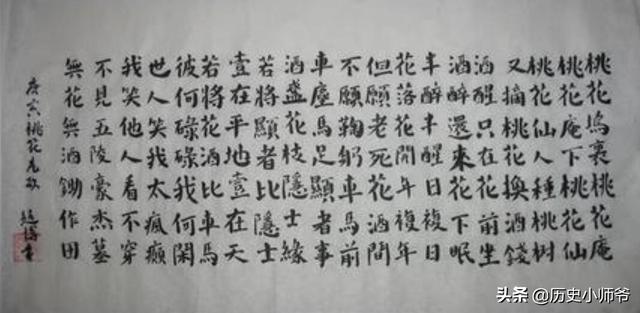 桃花塢裏桃花庵
桃花庵下桃花仙
桃花仙人種桃树
又摘桃花換酒錢
酒醒只在花前坐
酒醉還來花下眠
半醉半醒日複日
花落花開年複年
但願老死花酒間
不願鞠躬車馬前
車塵馬足顯者事
酒盞花枝隱士緣
若將顯者比隱士
壹在平地壹在天
若將花酒比車馬
彼何碌碌我何閑
世人笑我太瘋癲
我笑他人看不穿
不見五陵豪杰墓
無花無酒鋤作田
庚寅桃花
头条 @历史小师爷